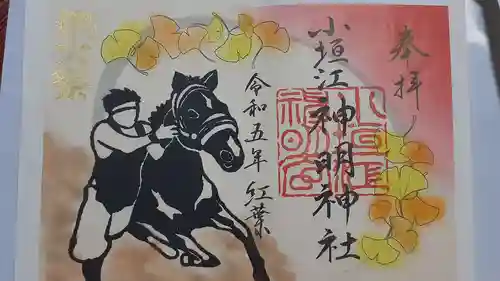 奉拝
小垣江神明神社
令和五年 紅葉